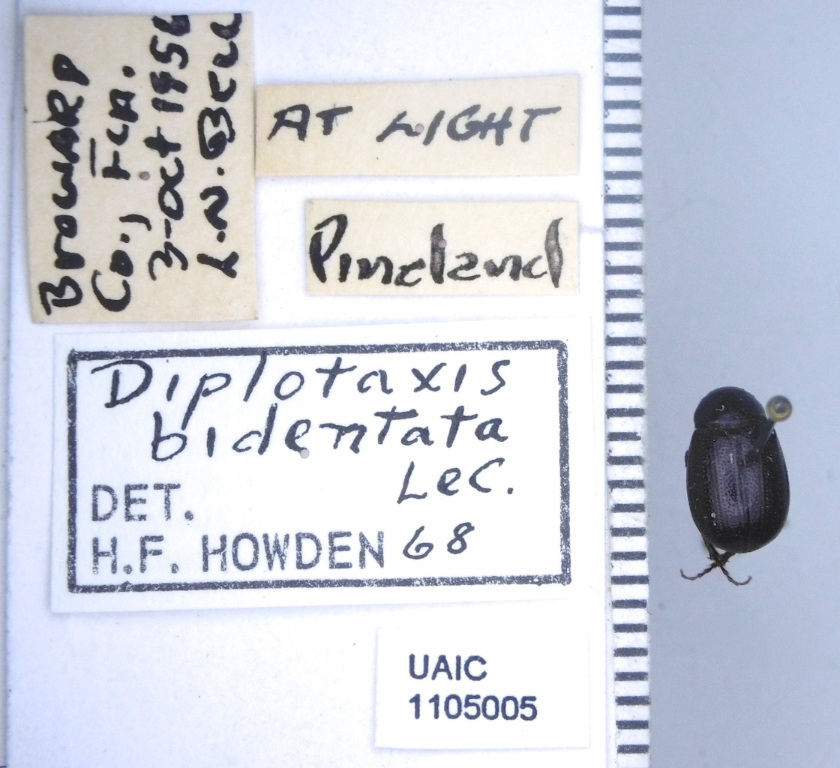 Broward
Co., Fla.
3-Oct 1956
L.N. Bell
AT LIGHT
Pineland
Diplotaxis
bidentata
LeC.
DET.
H.F. HOWDEN 68
UAIC
1105005